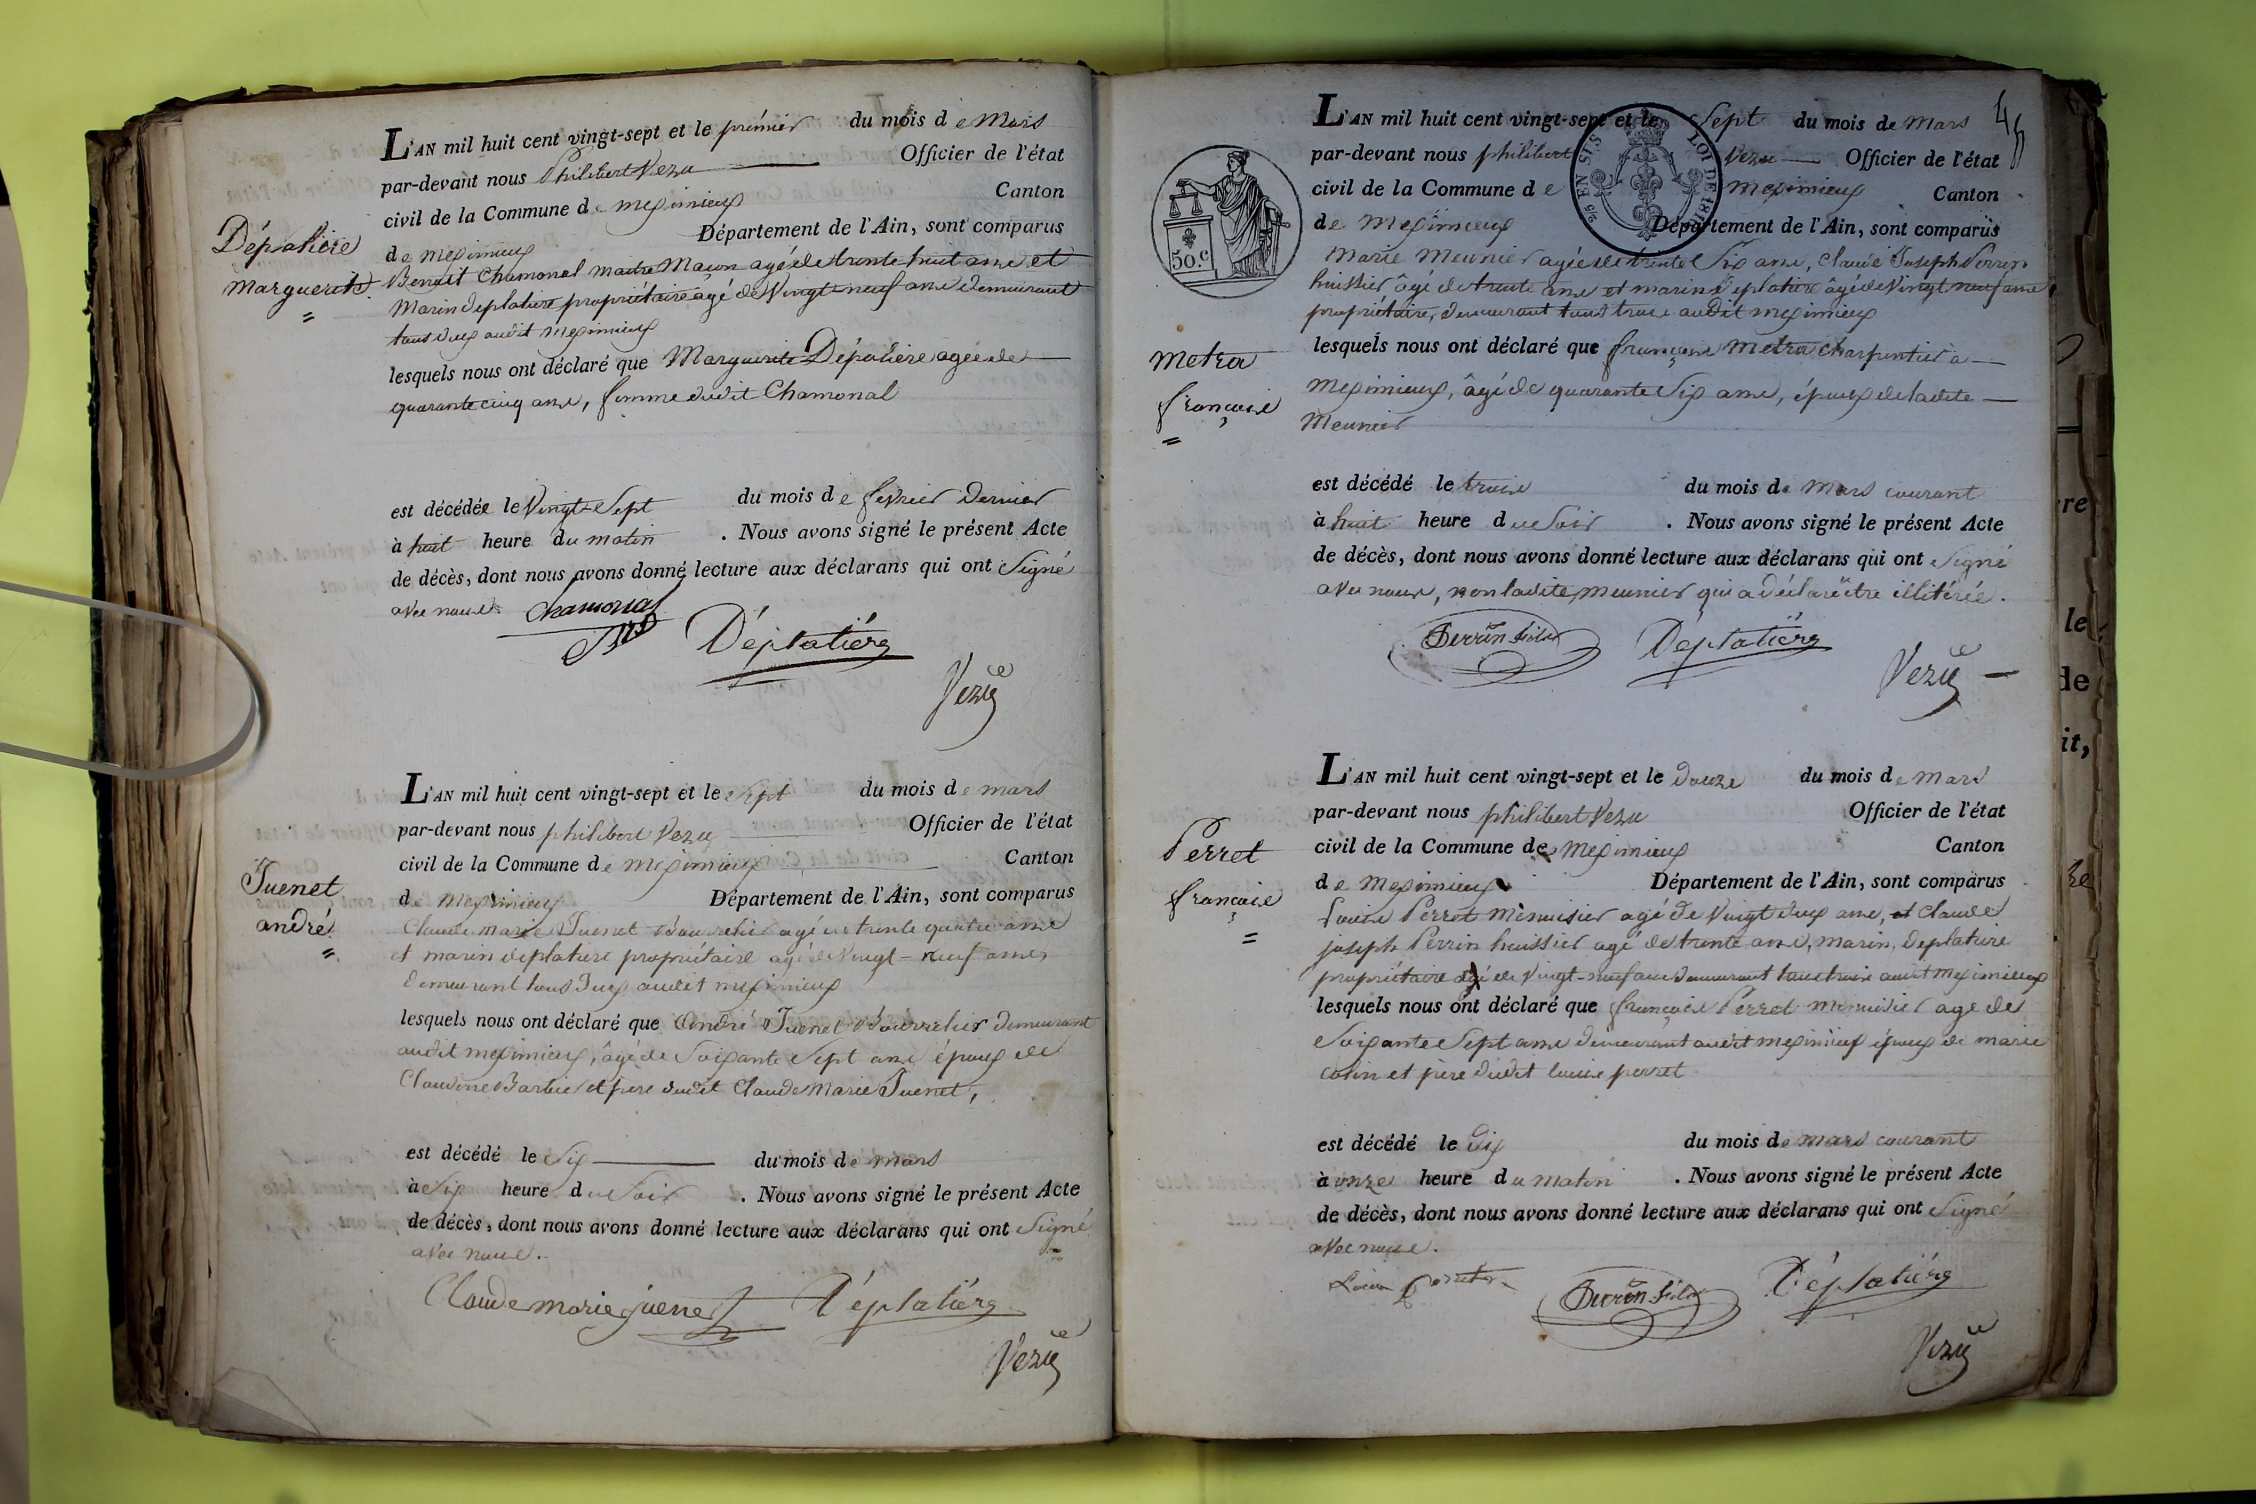 L'AN mil huit cent vingt-sept et le prémier du mois de Mars
par-devant nous Philibert Vezu Officier de l'état
civil de la Commune de meximieux Canton
de meximieux Département de l'Ain, sont comparus
Dépalière
Marguerite
Benoit Chamonal maitre Maçon agé de trente huit ans et
Marin deplatiere propriétaire âgé de Vingt neuf ans demeurant
tous deux audit meximieux
lesquels nous ont déclaré que Marguerite Dépalière agée de
quarante cinq ans, femme dudit Chamonal
est décédée le Vingt-Sept du mois de fevrier dernier
à huit heure du matin . Nous avons signé le présent Acte
de décès, dont nous avons donné lecture aux déclarans qui ont Signé
avec nous.
Chamonal
Déplatiére
Vezu
L'AN mil huit cent vingt-sept et le Sept du mois de mars
par-devant nous philibert Vezu Officier de l'état
civil de la Commune de meximieux Canton
de Meximieux Département de l'Ain, sont comparus
Juenet
andré
Claude marie Juenet Bourrelier agé de trente quatre ans
et marin deplatiere propriétaire agé de Vingt-neuf ans
demeurant tous deux audit meximieux
lesquels nous ont déclaré que André Juenet Bourrelier demeurant
audit meximieux, âgé de Soixante Sept ans époux de
Claudine Barbier et pere dudit Claude Marie Juenet,
est décédé le Six du mois de mars
à Six heure du Soir . Nous avons signé le présent Acte
de décès, dont nous avons donné lecture aux déclarans qui ont Signé
avec nous.
Claude marie juenet Déplatiére
Vezu
45
L'AN mil huit cent vingt-sept et le Sept du mois de Mars
par-devant nous philibert Vezu Officier de l'état
civil de la Commune de Meximieux Canton
de Meximieux Département de l'Ain, sont comparus
25 EN SUS LOI DE
50.c
Metra
françois
Marie Meunier agée de trente Six ans, Claude Joseph Perrin
huissier âgé de trente ans et marin deplatiere âgé de Vingt neuf ans
propriétaire, demeurant tous trois audit meximieux
lesquels nous ont déclaré que françois Metra charpentier à
Meximieux, âgé de quarante Six ans, époux de ladite
Meunier
est décédé le trois du mois de Mars courant
à huit heure du Soir . Nous avons signé le présent Acte
de décès, dont nous avons donné lecture aux déclarans qui ont Signé
avec nous, non ladite meunier qui a déclaré être illitérée.
Perrin fils Déplatiére
Vezu
L'AN mil huit cent vingt-sept et le douze du mois de Mars
par-devant nous philibert Vezu Officier de l'état
civil de la Commune de Meximieux Canton
de Meximieux Département de l'Ain, sont comparus
Perret
françois
Louis Perret Menuisier agé de Vingt deux ans, et Claude
joseph Perrin huissier agé de trente ans, marin deplatiere
propriétaire agé de Vingt-neuf ans demeurant tous trois audit Meximieux
lesquels nous ont déclaré que françois Perret menuisier age de
Soixante Sept ans demeurant audit meximieux époux de marie
colin et père dudit louis perret
est décédé le dix du mois de mars courant
à onze heure du matin . Nous avons signé le présent Acte
de décès, dont nous avons donné lecture aux déclarans qui ont Signé
avec nous.
Louis perret Perrin fils Déplatiére
Vezu
re
le
de
it,